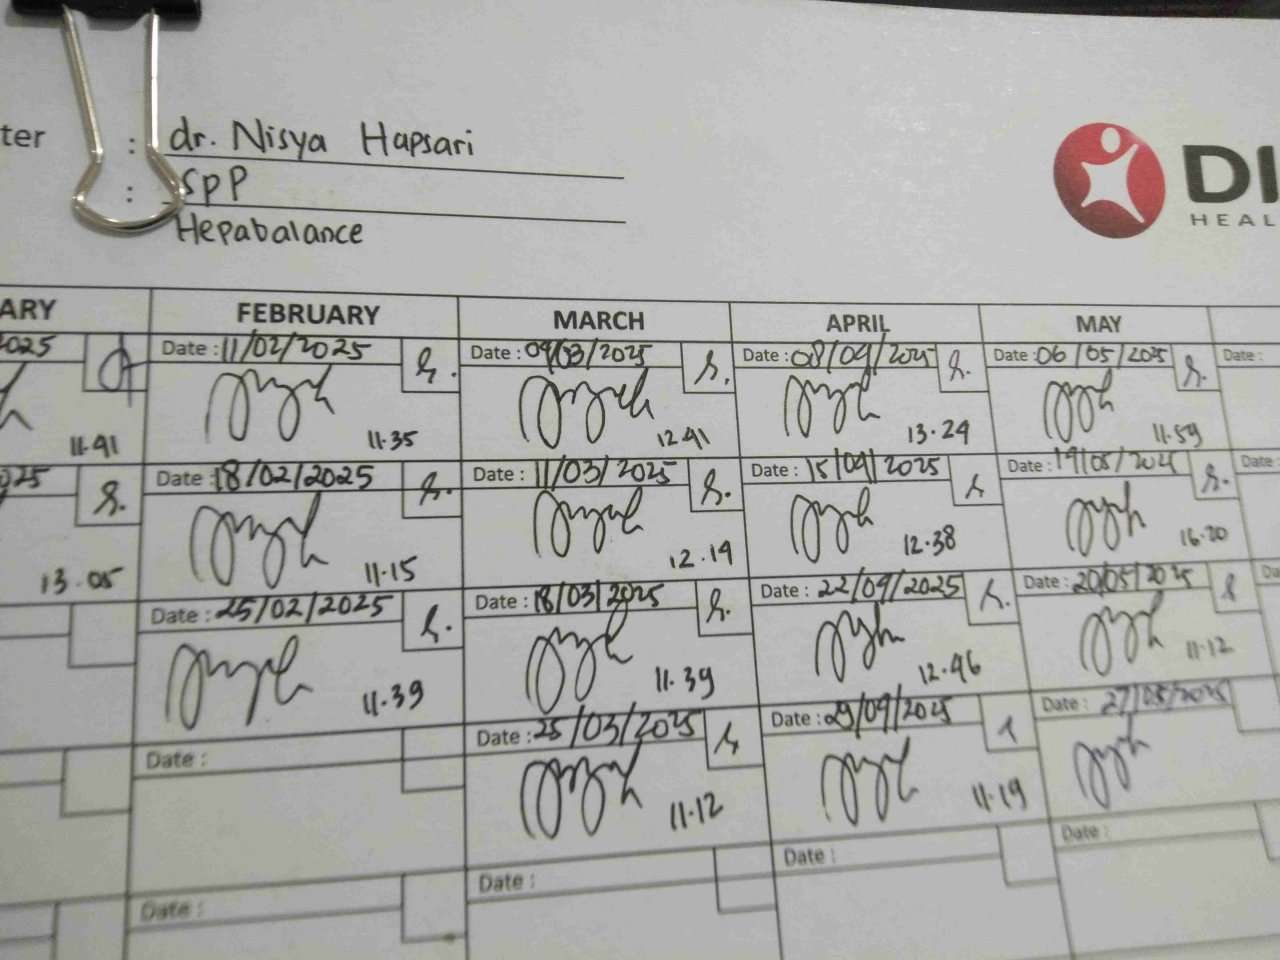 ter : dr. Nisya Hapsari
: SpP
Hepabalance
DI
HEAL
ARY FEBRUARY MARCH APRIL MAY
2025 Date : 11/02/2025 Date : 04/03/2025 Date : 08/04/2025 Date : 06/05/2025 Date :
11.41 11.35 12.41 13.24 11.59
025 Date : 18/02/2025 Date : 11/03/2025 Date : 15/04/2025 Date : 19/05/2025 Date :
13.05 11.15 12.14 12.38 16.20
Date : 25/02/2025 Date : 18/03/2025 Date : 22/04/2025 Date : 20/05/2025 Da
11.39 11.39 12.46 11.12
Date : Date : 25/03/2025 Date : 29/04/2025 Date : 27/05/2025
11.12 11.19
Date : Date : Date : Date :